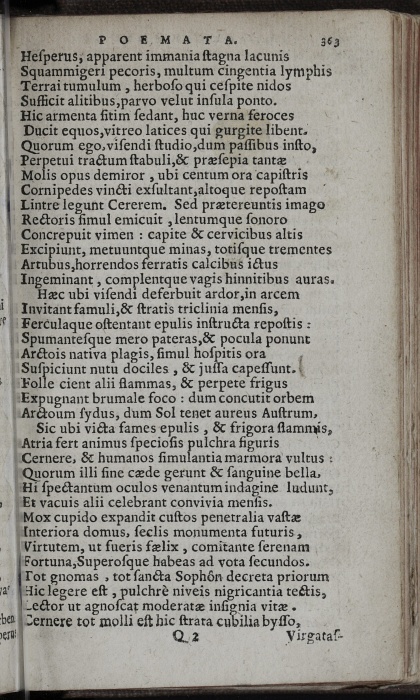 POEMATA. 363
Hesperus, apparent immania stagna lacunis
Squammigeri pecoris, multum cingentia lymphis
Terrai tumulum, herboso qui cespite nidos
Sufficit alitibus, parvo velut insula ponto.
Hic armenta sitim sedant, huc verna feroces
Ducit equos, vitreo latices qui gurgite libent.
Quorum ego, visendi studio, dum passibus insto,
Perpetui tractum stabuli, & præsepia tantæ
Molis opus demiror, ubi centum ora capistris
Cornipedes vincti exsultant, altoque repostam
Lintre legunt Cererem. Sed prætereuntis imago
Rectoris simul emicuit, lentumque sonoro
Concrepuit vimen: capite & cervicibus altis
Excipiunt, metuuntque minas, totisque trementes
Artubus, horrendos ferratis calcibus ictus
Ingeminant, complentque vagis hinnitibus auras.
Hæc ubi visendi deferbuit ardor, in arcem
Invitant famuli, & stratis triclinia mensis,
Ferculaque ostentant epulis instructa repostis:
Spumantesque mero pateras, & pocula ponunt
Arctois nativa plagis, simul hospitis ora
Suspiciunt nutu dociles, & jussa capessunt.
Folle cient alii flammas, & perpete frigus
Expugnant brumale foco: dum concutit orbem
Arctoum sydus, dum Sol tenet aureus Austrum,
Sic ubi victa fames epulis, & frigora flammis,
Atria fert animus speciosis pulchra figuris
Cernere, & humanos simulantia marmora vultus:
Quorum illi sine cæde gerunt & sanguine bella,
Hi spectantum oculos venantum indagine ludunt,
Et vacuis alii celebrant convivia mensis.
Mox cupido expandit custos penetralia vastæ
Interiora domus, seclis monumenta futuris,
Virtutem, ut fueris fælix, comitante serenam
Fortuna, Superosque habeas ad vota secundos.
Tot gnomas, tot sancta Sophôn decreta priorum
Hic legere est, pulchrè niveis nigricantia tectis,
Lector ut agnoscat moderatæ insignia vitæ.
Cernere tot molli est hic strata cubilia bysso,
Q 2 Virgatas-